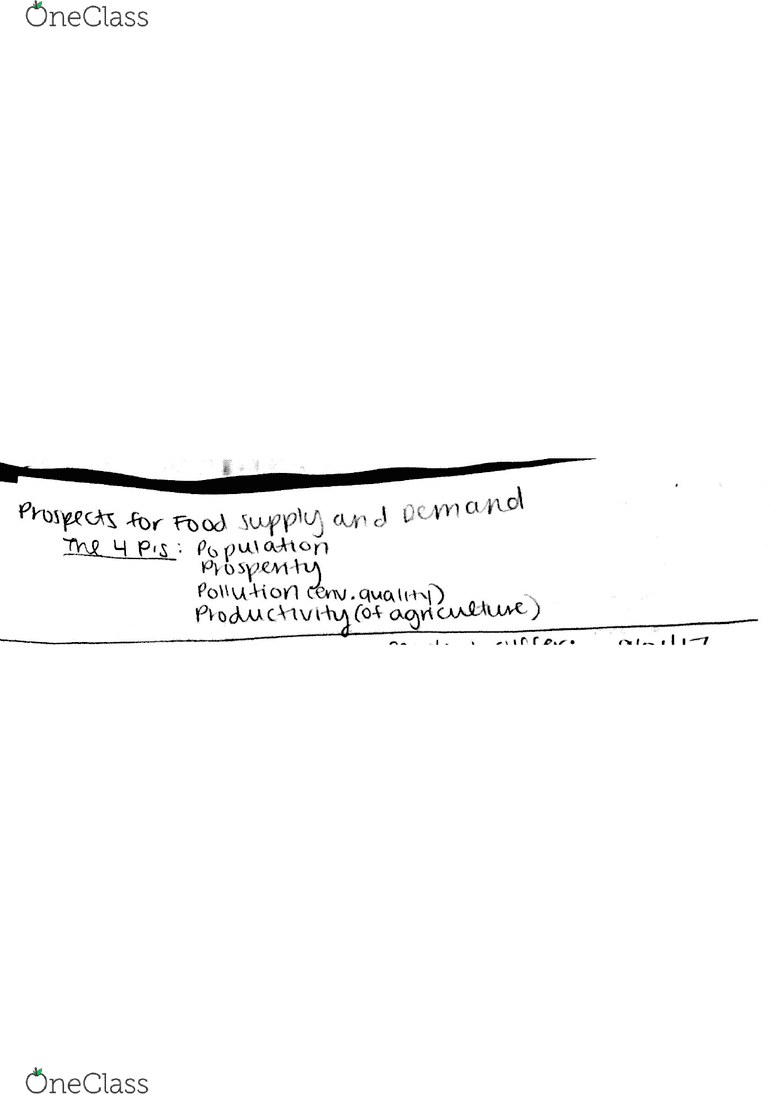 OneClass
Prospects for Food supply and Demand
The 4 P's: Population
Prosperity
Pollution (env. quality)
Productivity (of agriculture)
OneClass